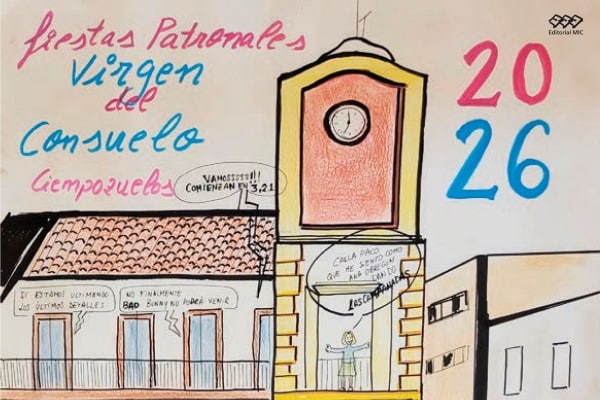 fiestas Patronales
Virgen
del
Consuelo
Ciempozuelos
20
26
Editorial MIC
VAMOSSSSS!!!
COMIENZAN EN 3,2,1
CALLA PACO
QUE ME SIENTO COMO
ANA OBREGON
DANDO
LAS CAMPANADAS
SI ESTAMOS ULTIMANDO
LOS ÚLTIMOS DETALLES
NO FINALMENTE
BAD BUNNY NO PODRÁ VENIR